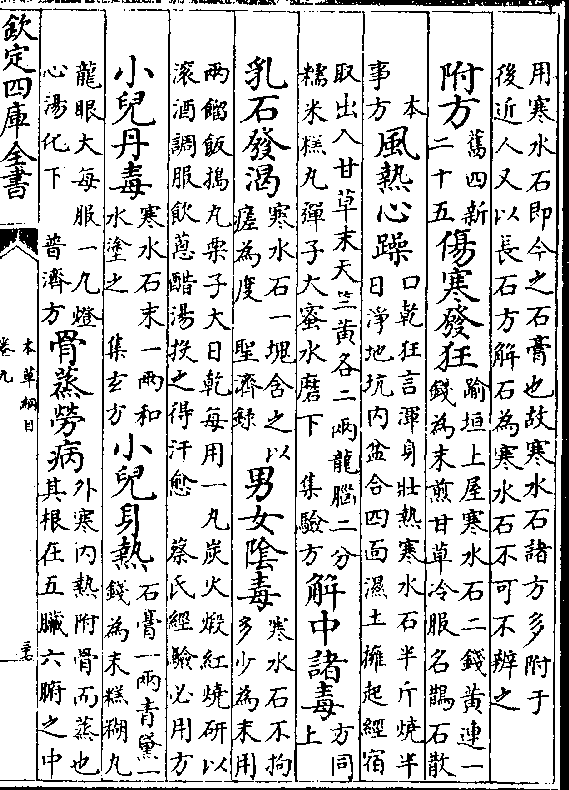 用寒水石即今之石膏也故寒水石諸方多附于
後近人又以長石方解石為寒水石不可不辨之
附方
舊四新
二十五
傷寒發狂
踰垣上屋寒水石二錢黃連一
錢為末煎甘草冷服名鵲石散
本
事方
風熱心躁
口乾狂言渾身壯熱寒水石半斤燒半
日淨地坑内盆合四面濕土擁起經宿
取出入甘草末天竺黃各二兩龍腦二分
糯米糕丸彈子大蜜水磨下 集驗方
解中諸毒
方同
上
乳石發渴
寒水石一塊含之以
瘥為度 聖濟錄
男女陰毒
寒水石不拘
多少為末用
兩餾飯搗丸栗子大日乾每用一丸炭火煅紅燒研以
滚酒調服飲葱醋湯投之得汗愈 蔡氏經驗必用方
小兒丹毒
寒水石末一兩和
水塗之 集玄方
小兒身熱
石膏一兩青黛一
錢為末糕糊丸
龍眼大每服一丸燈
心湯化下 普濟方
骨蒸勞病
外寒内熱附骨而蒸也
其根在五臟六腑之中
欽定四庫全書
本草綱目
卷九